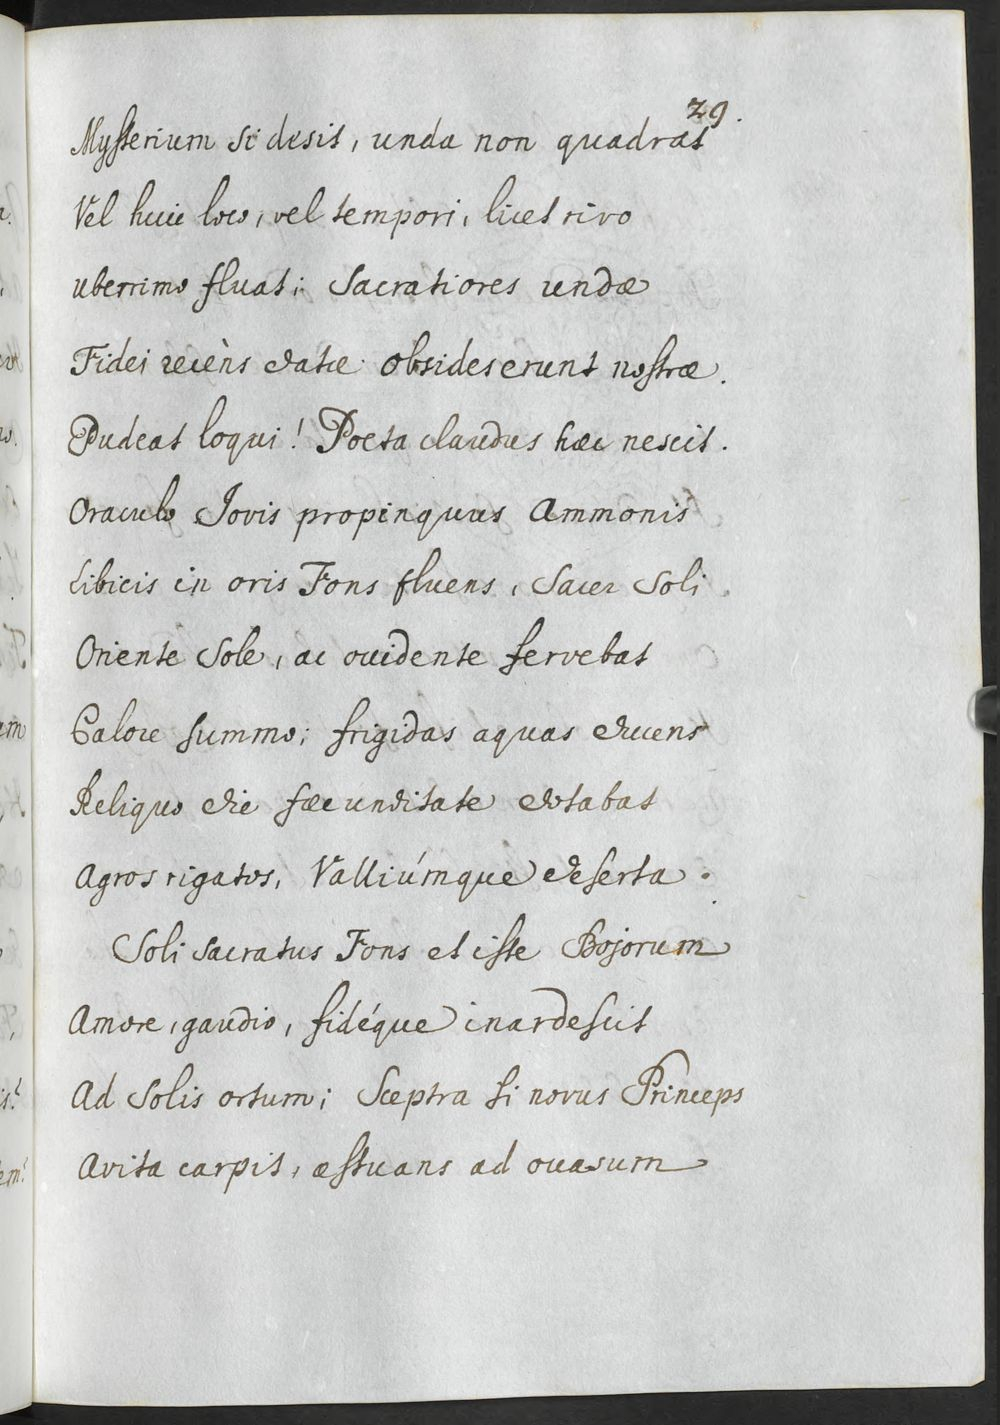 29.
Mysterium si desit, unda non quadrat
Vel huic loco, vel tempori, licet rivo
uberrimo fluat; Sacratiores undæ
Fidei recèns datæ obsides erunt nostræ.
Pudeat loqui! Poeta claudus hæc nescit.
Oraculo Jovis propinquus Ammonis
Libicis in oris Fons fluens, Sacer Soli
Oriente Sole, ac occidente fervebat
Calore summo; frigidas aquas ducens
Reliquo die fæcunditate dotabat
Agros rigatos, Valliúmque deserta.
Soli sacratus Fons et iste Bojorum
Amore, gaudio, fidéque inardescit
Ad Solis ortum; Sceptra si novus Princeps
Avita carpit, æstuans ad occasum